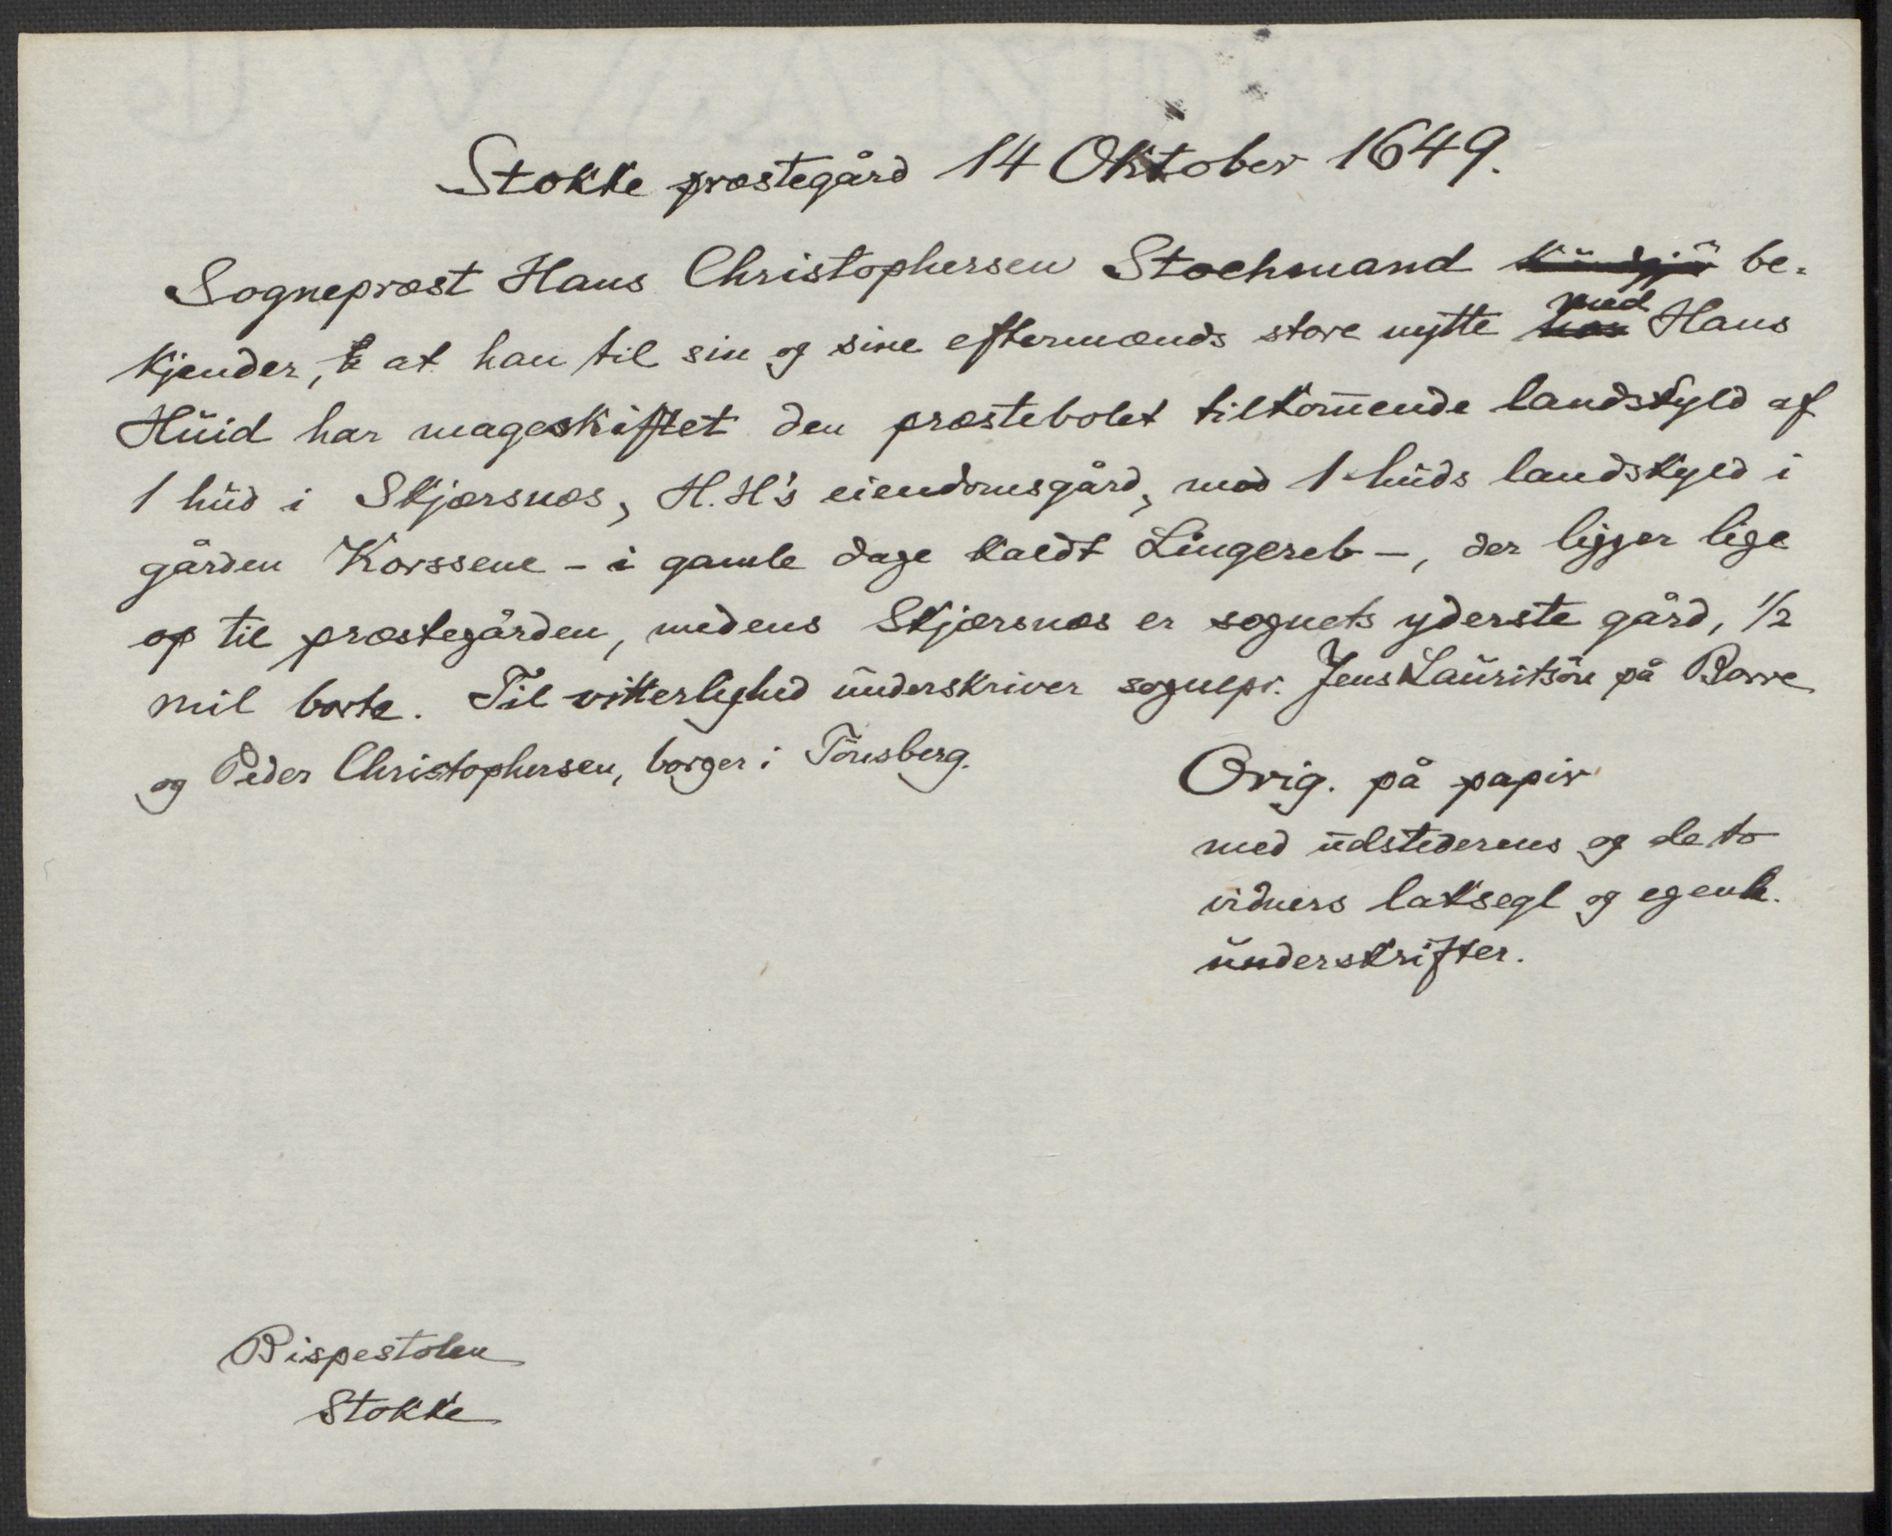 Stokke præstegård 14 Oktober 1649.
Sognepræst Hans Christophersen Stochmand be-
kjender, at han til sin og sine eftermænds store nytte med Hans
Huid har mageskiftet den præstebolet tilkom̄ende landskyld af
1 hud i Skjærsnæs, H.H's eiendomsgård, mod 1 huds landskyld i
gården Korssene - i gamle dage kaldt Lingereb -, der ligger lige
op til præstegården, medens Skjærsnæs er sognets yderste gård, 1/2
mil borte. Til vitterlighed underskriver sognepr. Jens Lauritsön på Borre
og Peder Christophersen, borger i Tönsberg.
Orig. på papir
med udstederens og de to
vidners laksegl og egenh.
underskrifter.
Bispestolen
Stokke